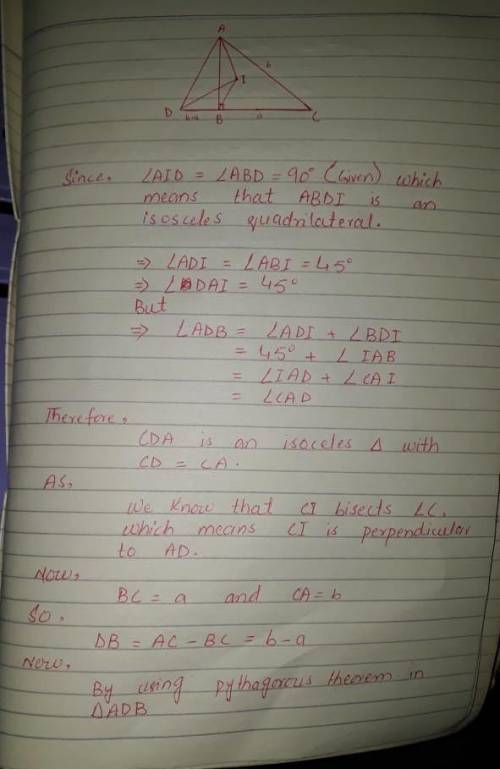 A
b
I
D
b-a
B
a
C
Since, ∠AID = ∠ABD = 90° (Given) which
means that ABDI is an
isosceles quadrilateral.
⇒ ∠ADI = ∠ABI = 45°
⇒ ∠DAI = 45°
But
⇒ ∠ADB = ∠ADI + ∠BDI
= 45° + ∠IAB
= ∠IAD + ∠CAI
= ∠CAD
Therefore,
CDA is an isoceles Δ with
CD = CA.
As,
We know that CI bisects ∠C,
which means CI is perpendicular
to AD.
Now,
BC = a and CA = b
So,
DB = AC - BC = b-a
Now,
By using pythagorus theorem in
ΔADB